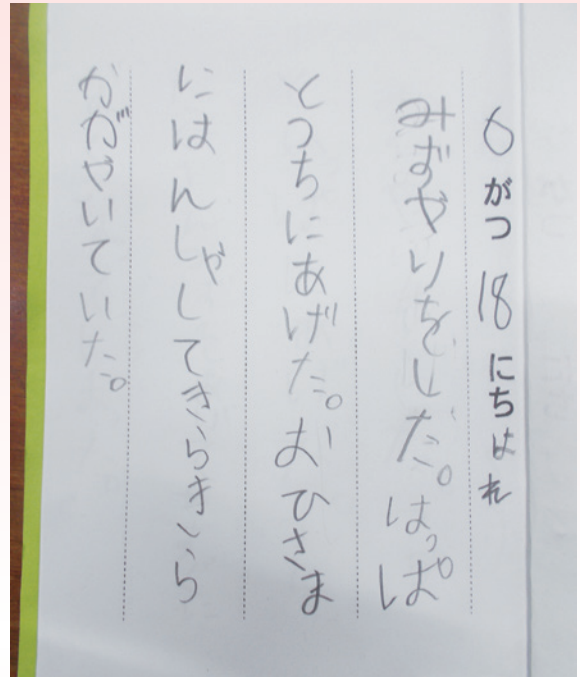 6がつ18にちはれ
みずやりをした。はっぱ
とつちにあげた。おひさま
にはんしゃしてきらきら
かがやいていた。